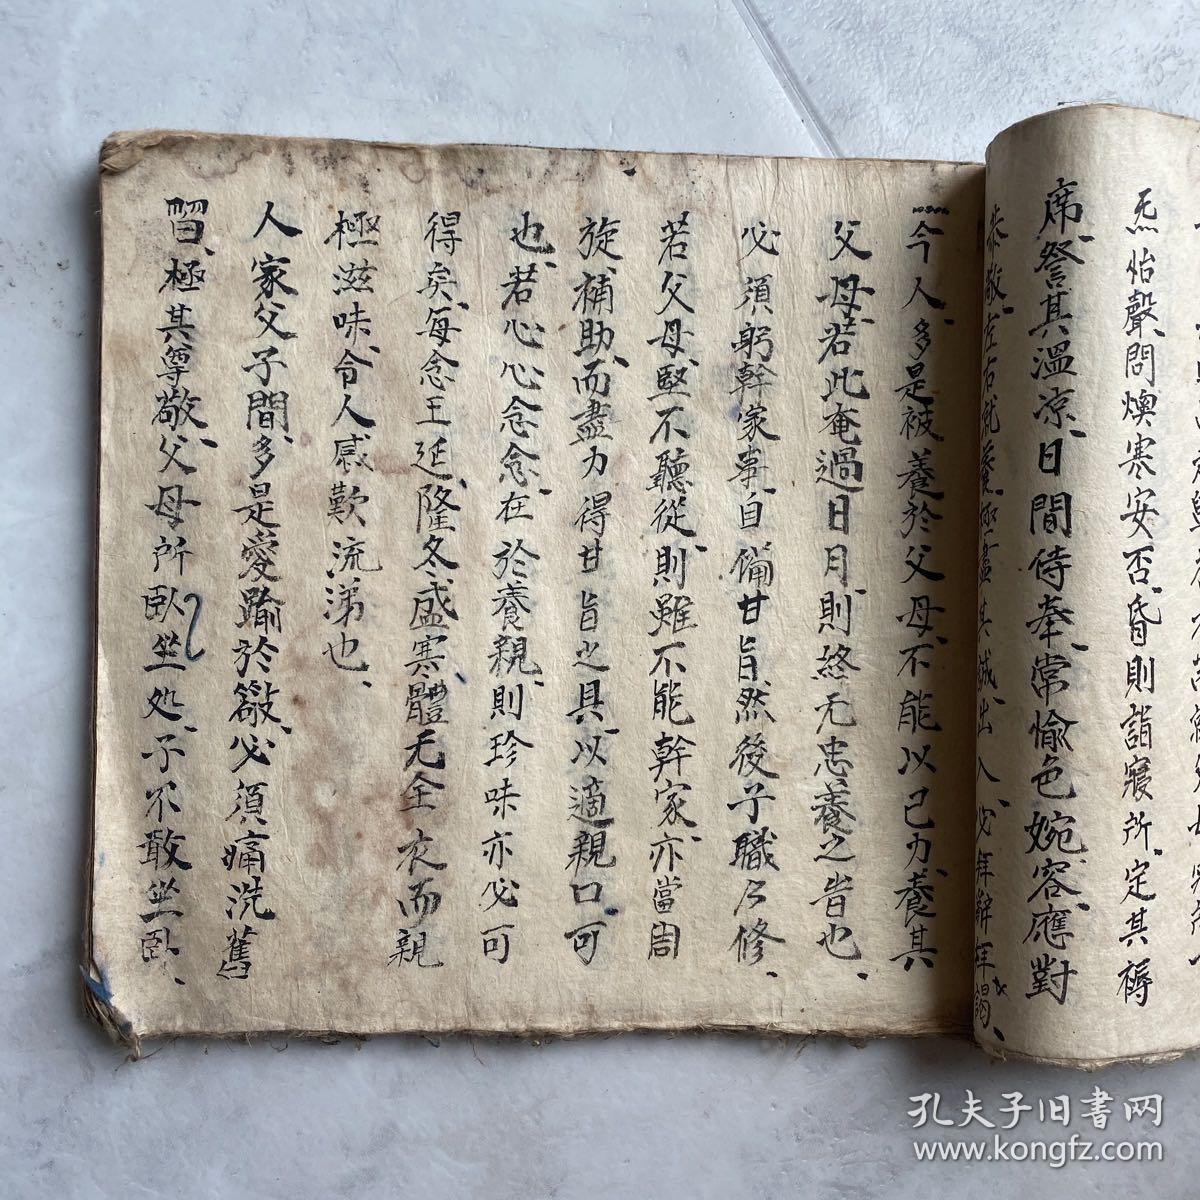 炁怡聲問燠寒安否昏則詣寢所定其褥
席詧其溫凉日間侍奉常愉色婉容應對
恭敬左右就養極盡其誠出入必拜辭拜謁
一今人多是被養於父母不能以己力養其
父母若此奄過日月則終无忠養之旹也
必須躬幹家事自備甘旨然後子職乃修
若父母堅不聽從則雖不能幹家亦當周
旋補助而盡力得甘旨之具以適親口可
也若心心念念在於養親則珍味亦必可
得矣每念王延隆冬盛寒體无全衣而親
極滋味令人感歎流涕也
人家父子間多是愛踰於敬必須痛洗舊
習極其尊敬父母所臥坐处子不敢坐臥
孔夫子旧书网
www.kongfz.com